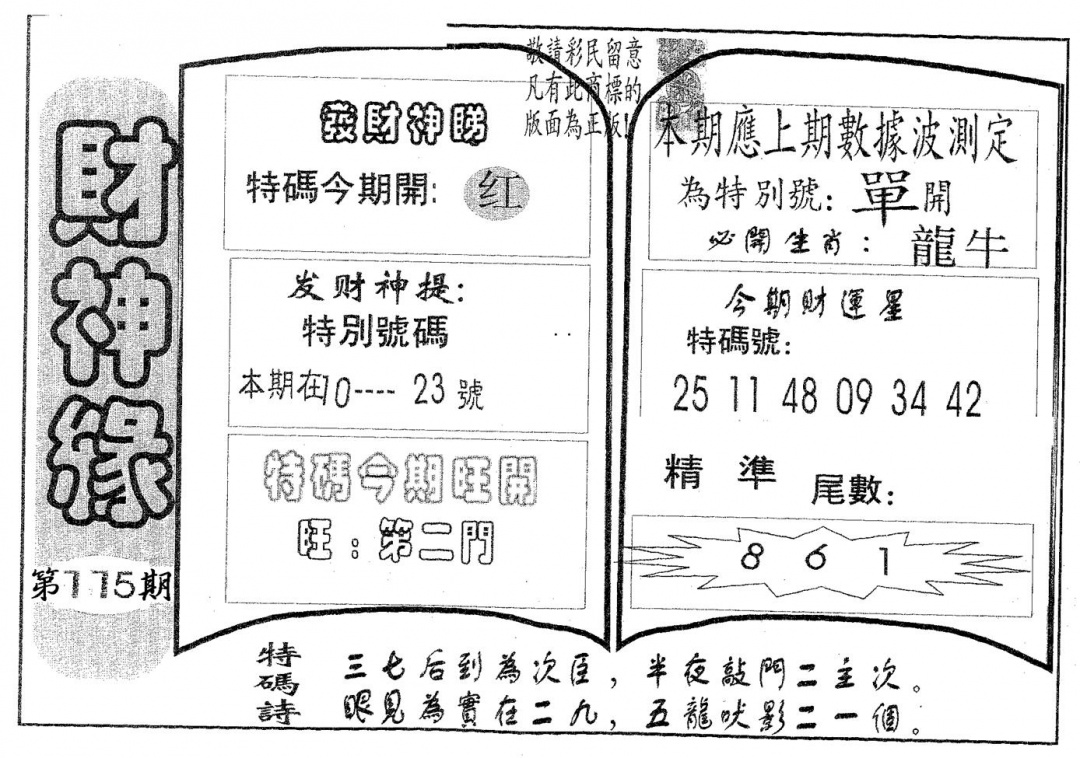 財神緣
第115期
敬請彩民留意
凡有此商標的
版面為正版!
發財神睇
特碼今期開: 红
发财神提:
特別號碼
本期在10---- 23 號
特碼今期旺開
旺:第二門
本期應上期數據波測定
為特別號: 單開
必開生肖: 龍牛
今期財運星
特碼號:
25 11 48 09 34 42
精 準 尾數:
8 6 1
特碼詩
三七后到為次臣, 半夜敲門二主次。
眼見為實在二九, 五龍吠影二一個。